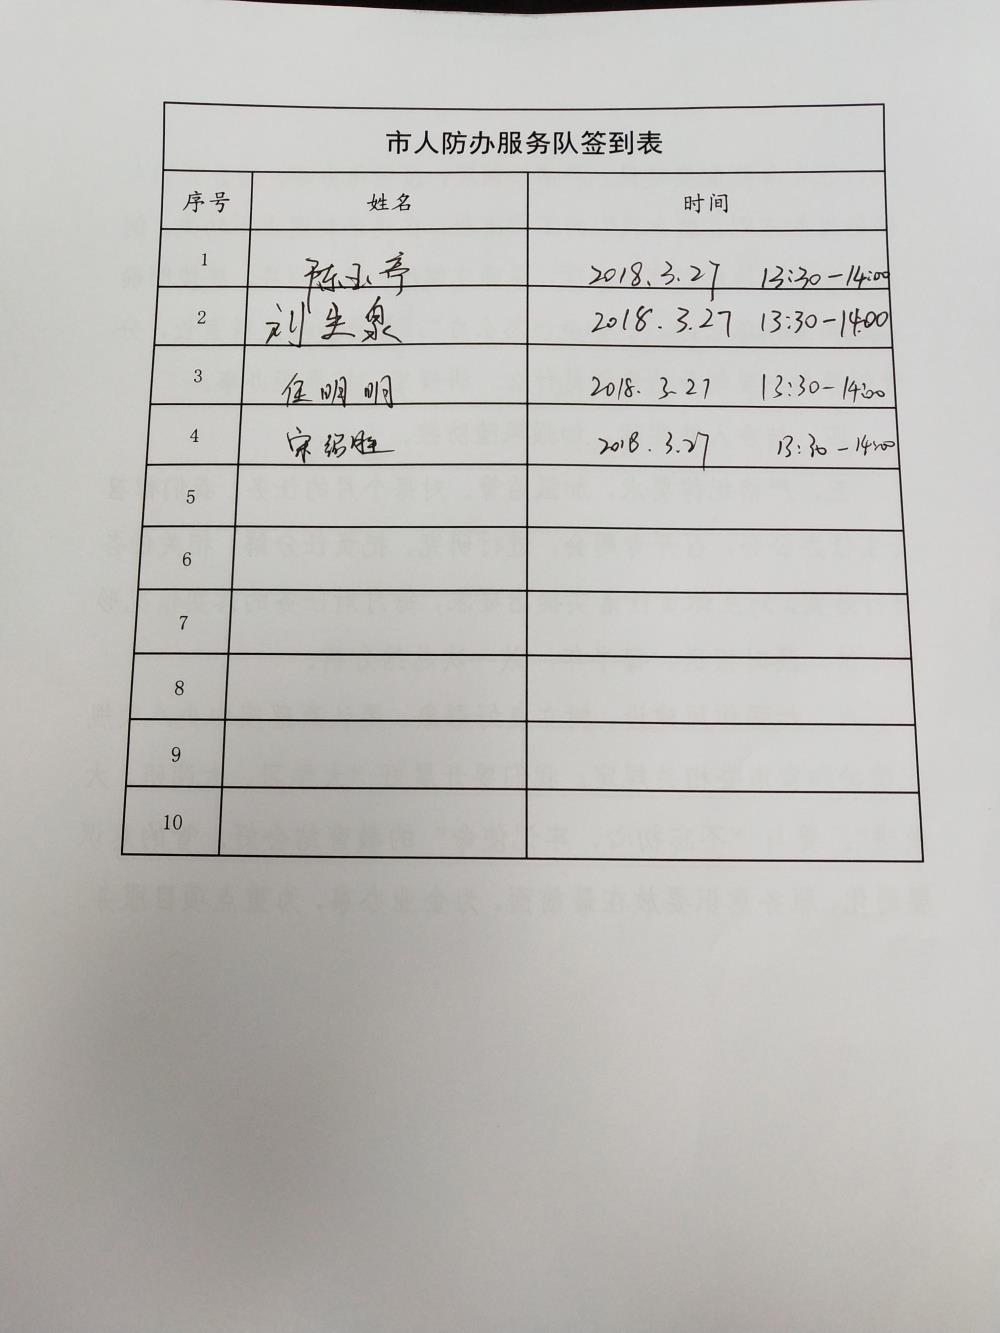 市人防办服务队签到表
序号 姓名 时间
1 陈玉亭 2018.3.27 13:30-14:00
2 刘生泉 2018.3.27 13:30-14:00
3 任明明 2018.3.27 13:30-14:00
4 宋绍胜 2018.3.27 13:30-14:00
5
6
7
8
9
10